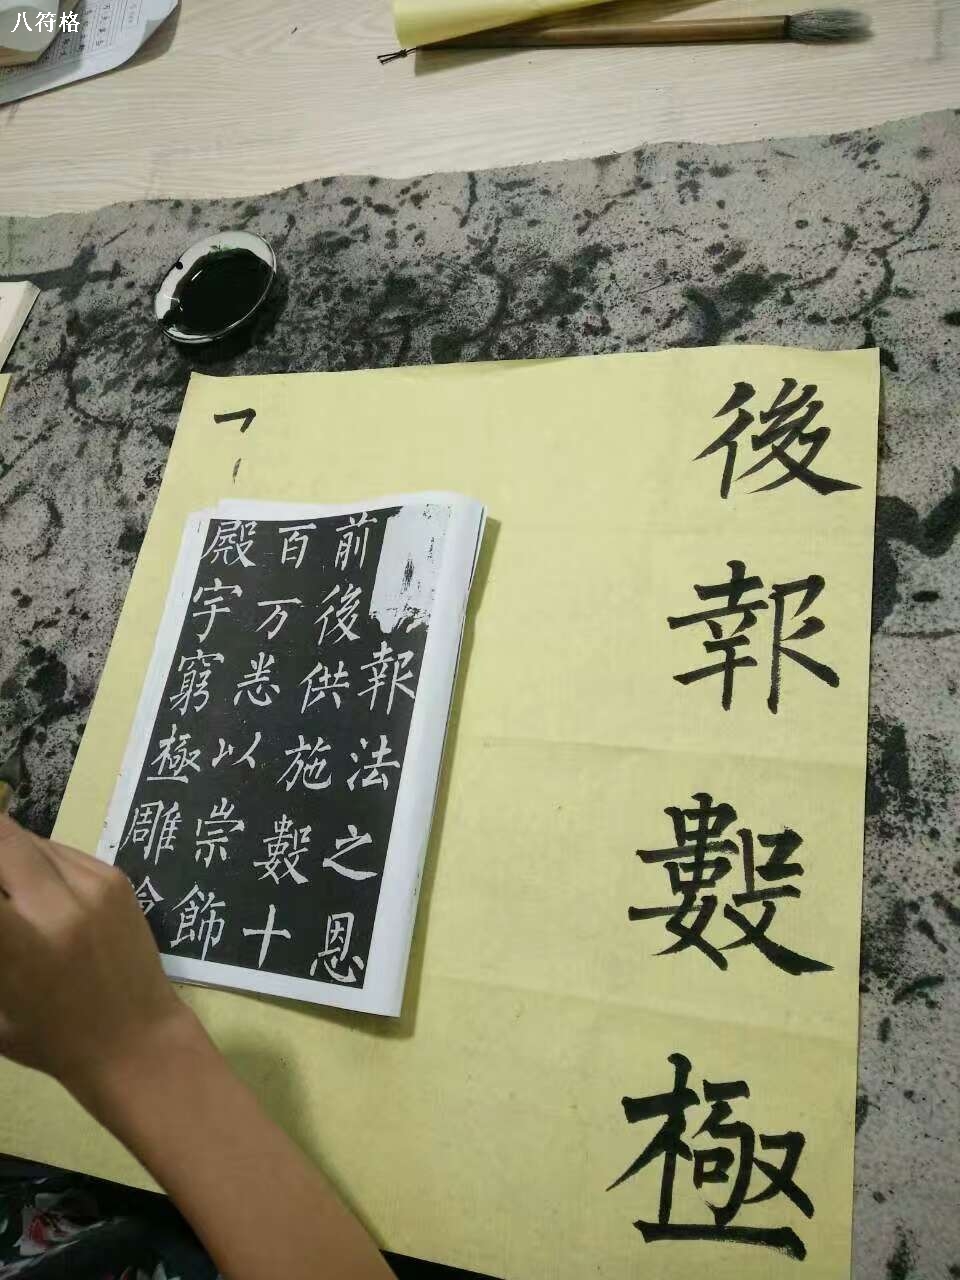 八符格
後報數極
報法之恩
前後供施數十
百万悉以崇飾
殿宇窮極雕